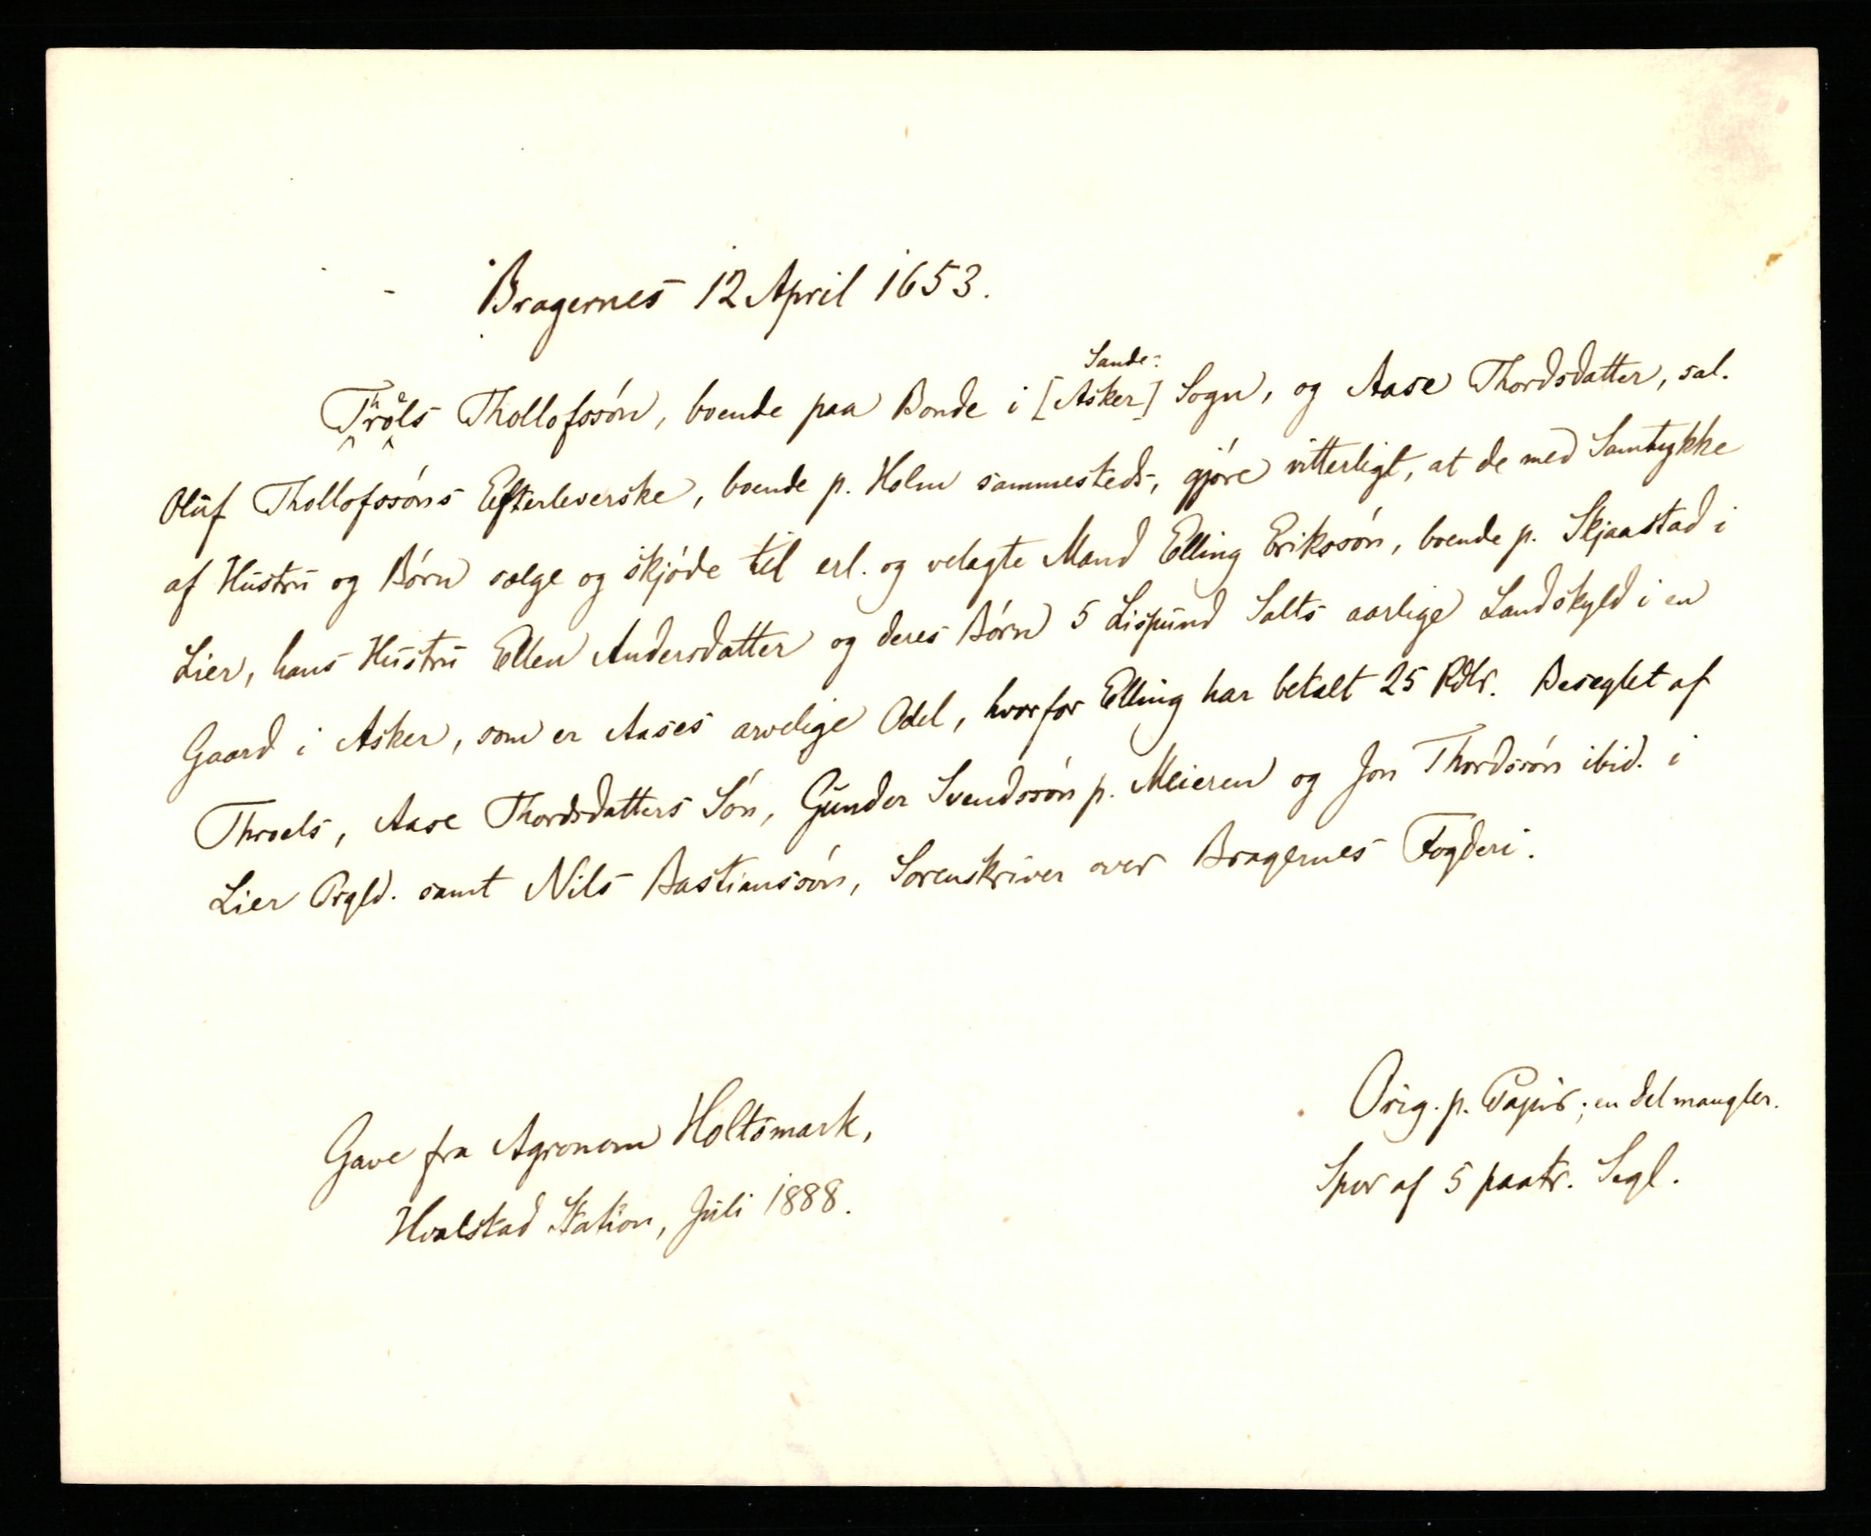 Bragernes 12 April 1653.
Sande-
Thröels Thollofssön, boende paa Bonde i [Asker] Sogn, og Aase Thordsdatter, sal.
Oluf Thollofssöns Efterleverske, boende p. Holm sammesteds, gjöre vitterligt, at de med Samtykke
af Hustru og Börn sælge og skjöde til erl. og velagte Mand Elling Erikssön, boende p. Skjaastad i
Lier, hans Hustru Ellen Andersdatter og deres Börn 5 Lispund Salts aarlige Landskyld i en
Gaard i Asker, som er Aases arvelige Odel, hvorfor Elling har betalt 25 Rdlr. Beseglet af
Throels, Aase Thordsdatters Sön, Gunder Svendssön p. Meieren og Jon Thordssön ibid. i
Lier Prgld. samt Nils Bastianssön, Sorenskriver over Bragernes Fogderi.
Orig. p. Papir; en del mangler.
Spor af 5 paatr. Segl.
Gave fra Agronom Holtsmark,
Hvalstad Station, Juli 1888.